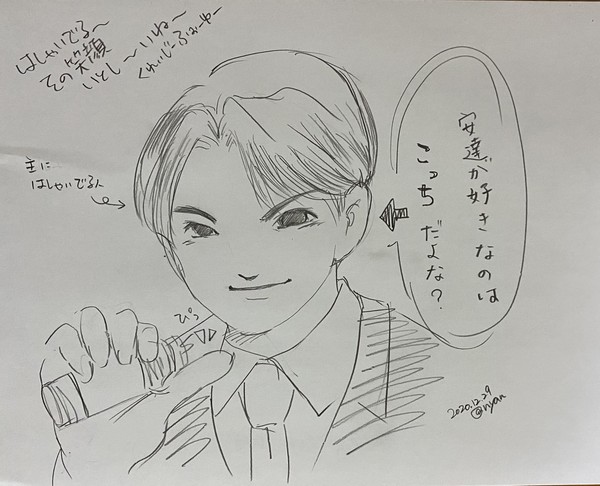 はしゃいでる〜
その笑顔
いとし〜いね〜
くれいじーふぉーゆー
主に
はしゃいでる人
安達が好きなのは
こっちだよな?
ぴっ
2020.12.29
@nyan